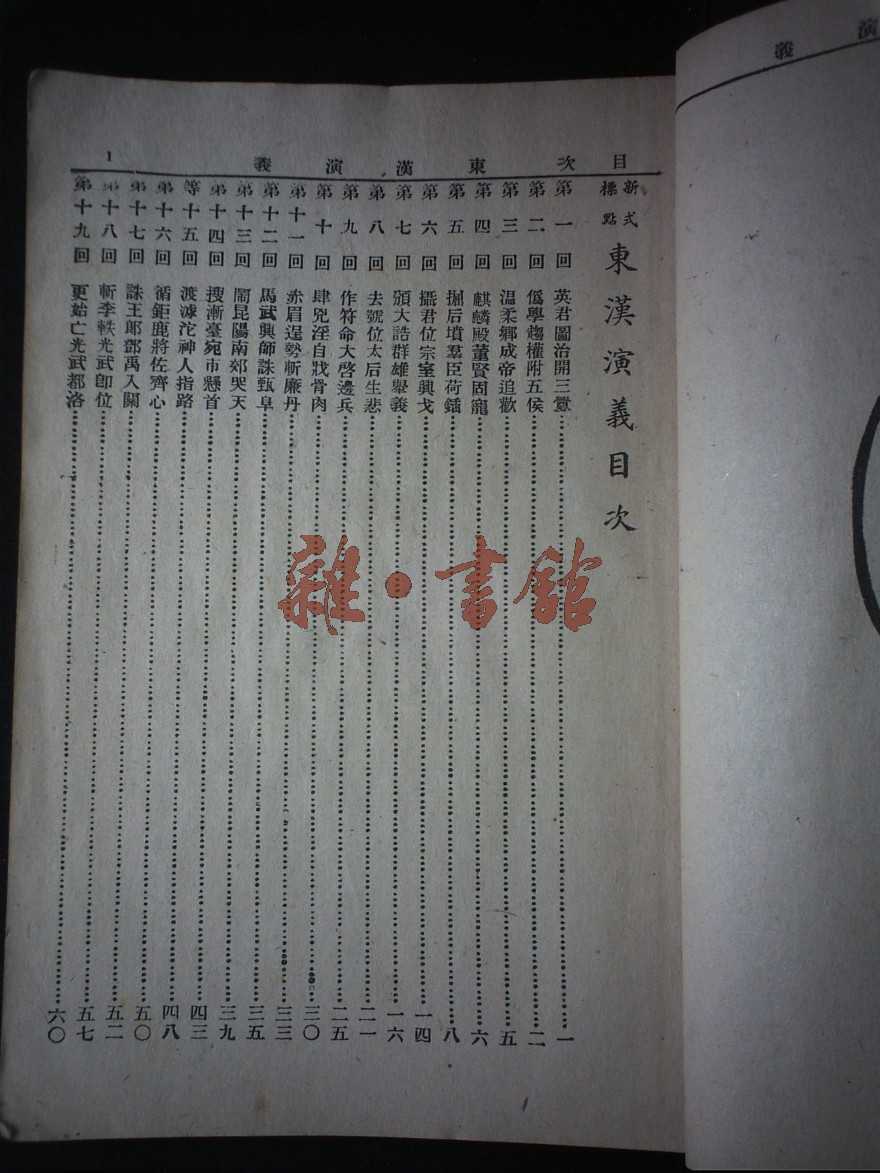 演義
目次 東漢演義 1
新式標點 東漢演義目次
第一回 英君圖治開三黌 一
第二回 僞學趨權附五侯 二
第三回 温柔鄉成帝追歡 五
第四回 麒麟殿董賢固寵 六
第五回 掘后墳羣臣荷鍤 八
第六回 攝君位宗室興戈 一四
第七回 頒大誥群雄舉義 一六
第八回 去號位太后生悲 二一
第九回 作符命大啓邊兵 二五
第十回 肆兇淫自戕骨肉 三〇
第十一回 赤眉逞勢斬廉丹 三三
第十二回 馬武興師誅甄阜 三五
第十三回 鬧昆陽南郊哭天 三九
第十四回 搜漸臺宛市懸首 四三
等十五回 渡滹沱神人指路 四八
第十六回 循鉅鹿將佐齊心 五〇
第十七回 誅王郎鄧禹入關 五二
第十八回 斬李軼光武卽位 五七
第十九回 更始亡光武都洛 六〇
雜·書館